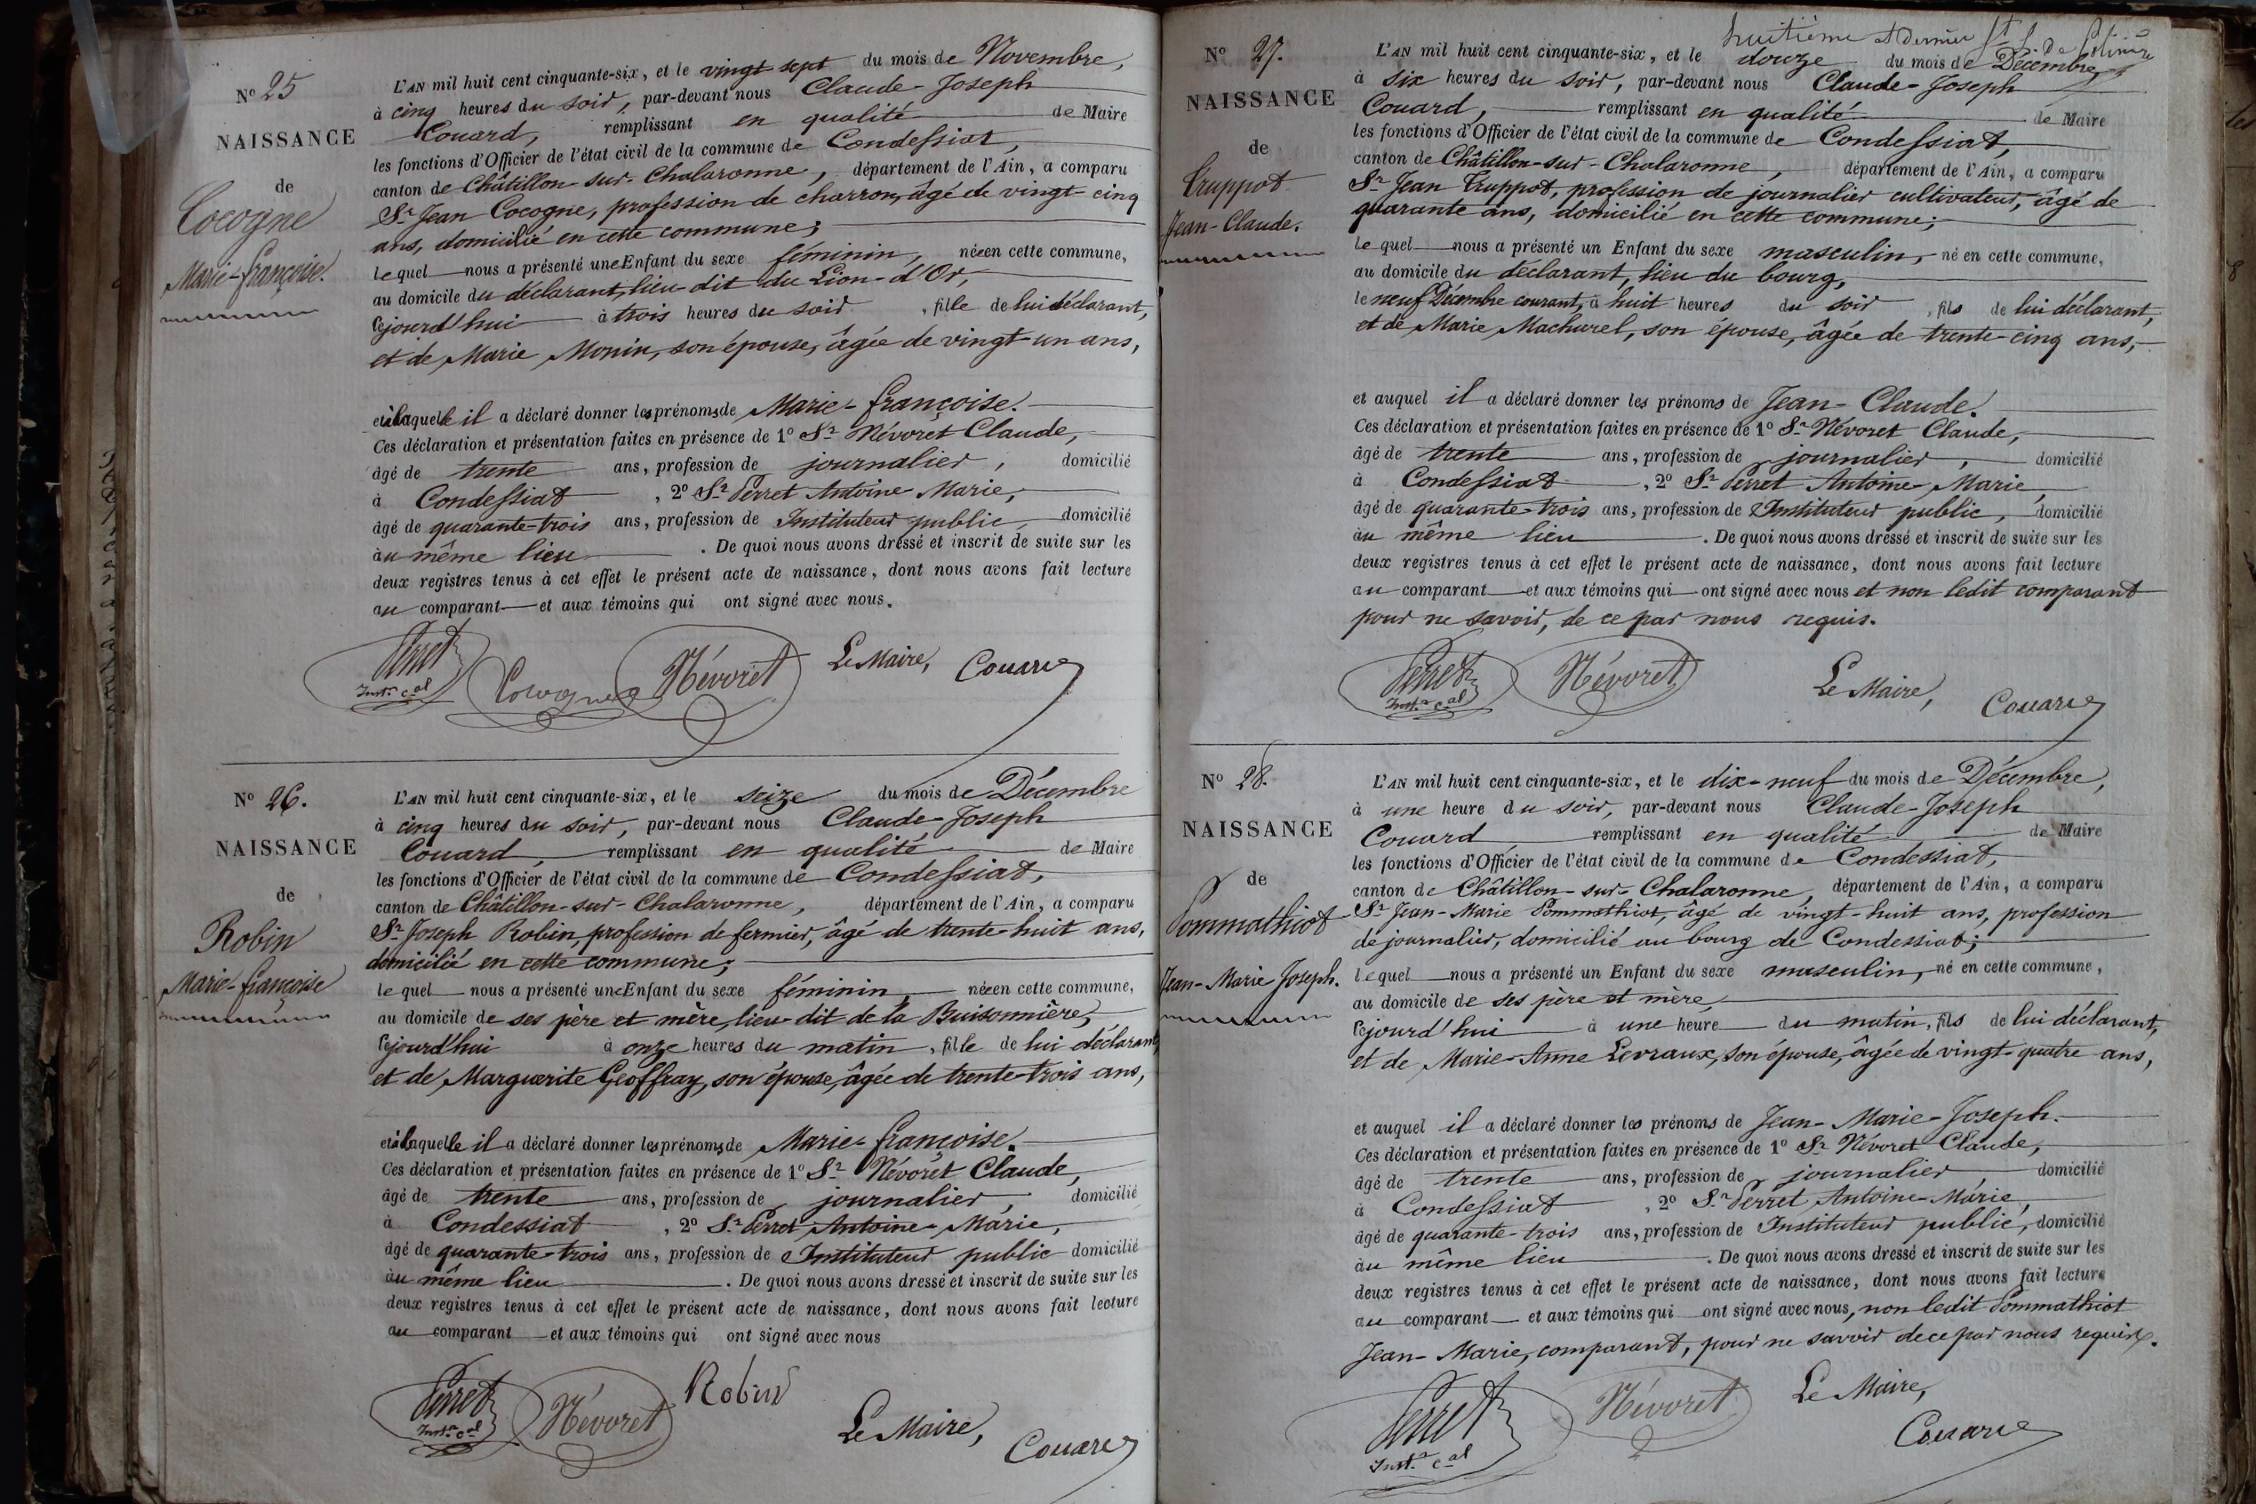 N° 25
NAISSANCE
de
Cocogne
Marie-françoise.
L'AN mil huit cent cinquante-six, et le vingt sept du mois de Novembre,
à cinq heures du soir, par-devant nous Claude-Joseph
Couard, remplissant en qualité de Maire
les fonctions d'Officier de l'état civil de la commune de Condessiat,
canton de Châtillon-sur-Chalaronne, département de l'Ain, a comparu
Sr Jean Cocogne, profession de charron, âgé de vingt-cinq
ans, domicilié en cette commune;
lequel nous a présenté une Enfant du sexe féminin, née en cette commune,
au domicile du déclarant, lieu-dit du Lion-d'Or,
cejourd'hui à trois heures du soir, fille de lui déclarant,
et de Marie Monin, son épouse, âgée de vingt-un ans,
et à laquelle il a déclaré donner les prénoms de Marie-françoise.
Ces déclaration et présentation faites en présence de 1° Sr Névoret Claude,
âgé de trente ans, profession de journalier, domicilié
à Condessiat, 2° Sr Perret Antoine-Marie,
âgé de quarante-trois ans, profession de Instituteur public, domicilié
au même lieu. De quoi nous avons dressé et inscrit de suite sur les
deux registres tenus à cet effet le présent acte de naissance, dont nous avons fait lecture
au comparant et aux témoins qui ont signé avec nous.
Perret Cocogne Névoret Le Maire, Couard
Instr cal
N° 26.
NAISSANCE
de
Robin
Marie-françoise
L'AN mil huit cent cinquante-six, et le seize du mois de Décembre
à cinq heures du soir, par-devant nous Claude-Joseph
Couard, remplissant en qualité de Maire
les fonctions d'Officier de l'état civil de la commune de Condessiat,
canton de Châtillon-sur-Chalaronne, département de l'Ain, a comparu
Sr Joseph Robin, profession de fermier, âgé de trente-huit ans,
domicilié en cette commune;
lequel nous a présenté une Enfant du sexe féminin, née en cette commune,
au domicile de ses père et mère, lieu-dit de la Buisonnière,
cejourd'hui à onze heures du matin, fille de lui déclarant
et de Marguerite Geoffray, son épouse, âgée de trente-trois ans,
et à laquelle il a déclaré donner les prénoms de Marie-françoise.
Ces déclaration et présentation faites en présence de 1° Sr Névoret Claude,
âgé de trente ans, profession de journalier, domicilié
à Condessiat, 2° Sr Perret Antoine-Marie,
âgé de quarante-trois ans, profession de Instituteur public domicilié
au même lieu. De quoi nous avons dressé et inscrit de suite sur les
deux registres tenus à cet effet le présent acte de naissance, dont nous avons fait lecture
au comparant et aux témoins qui ont signé avec nous
Perret Névoret Robin
Instr cal
Le Maire, Couard
huitième et dernier
N° 27.
NAISSANCE
de
Truppot
Jean-Claude.
L'AN mil huit cent cinquante-six, et le douze du mois de Décembre
à six heures du soir, par-devant nous Claude-Joseph
Couard, remplissant en qualité de Maire
les fonctions d'Officier de l'état civil de la commune de Condessiat,
canton de Châtillon-sur-Chalaronne, département de l'Ain, a comparu
Sr Jean Truppot, profession de journalier cultivateur, âgé de
quarante ans, domicilié en cette commune;
lequel nous a présenté un Enfant du sexe masculin, né en cette commune,
au domicile du déclarant, lieu du bourg,
le neuf Décembre courant, à huit heures du soir, fils de lui déclarant,
et de Marie Machurel, son épouse, âgée de trente-cinq ans,
et auquel il a déclaré donner les prénoms de Jean-Claude.
Ces déclaration et présentation faites en présence de 1° Sr Névoret Claude,
âgé de trente ans, profession de journalier, domicilié
à Condessiat, 2° Sr Perret Antoine-Marie,
âgé de quarante-trois ans, profession de Instituteur public, domicilié
au même lieu. De quoi nous avons dressé et inscrit de suite sur les
deux registres tenus à cet effet le présent acte de naissance, dont nous avons fait lecture
au comparant et aux témoins qui ont signé avec nous et non ledit comparant
pour ne savoir, de ce par nous requis.
Perret Névoret Le Maire, Couard
Instr cal
N° 28.
NAISSANCE
de
Pommathiot
Jean-Marie Joseph.
L'AN mil huit cent cinquante-six, et le dix-neuf du mois de Décembre,
à une heure du soir, par-devant nous Claude-Joseph
Couard remplissant en qualité de Maire
les fonctions d'Officier de l'état civil de la commune de Condessiat,
canton de Châtillon-sur-Chalaronne, département de l'Ain, a comparu
Sr Jean-Marie Pommathiot, âgé de vingt-huit ans, profession
de journalier, domicilié au bourg de Condessiat;
lequel nous a présenté un Enfant du sexe masculin, né en cette commune,
au domicile de ses père et mère
cejourd'hui à une heure du matin, fils de lui déclarant,
et de Marie-Anne Levraux, son épouse, âgée de vingt-quatre ans,
et auquel il a déclaré donner les prénoms de Jean-Marie-Joseph.
Ces déclaration et présentation faites en présence de 1° Sr Névoret Claude,
âgé de trente ans, profession de journalier, domicilié
à Condessiat, 2° Sr Perret Antoine-Marie,
âgé de quarante-trois ans, profession de Instituteur public, domicilié
au même lieu. De quoi nous avons dressé et inscrit de suite sur les
deux registres tenus à cet effet le présent acte de naissance, dont nous avons fait lecture
au comparant et aux témoins qui ont signé avec nous, non ledit Pommathiot
Jean-Marie, comparant, pour ne savoir de ce par nous requis.
Perret Névoret Le Maire,
Instr cal
Couard